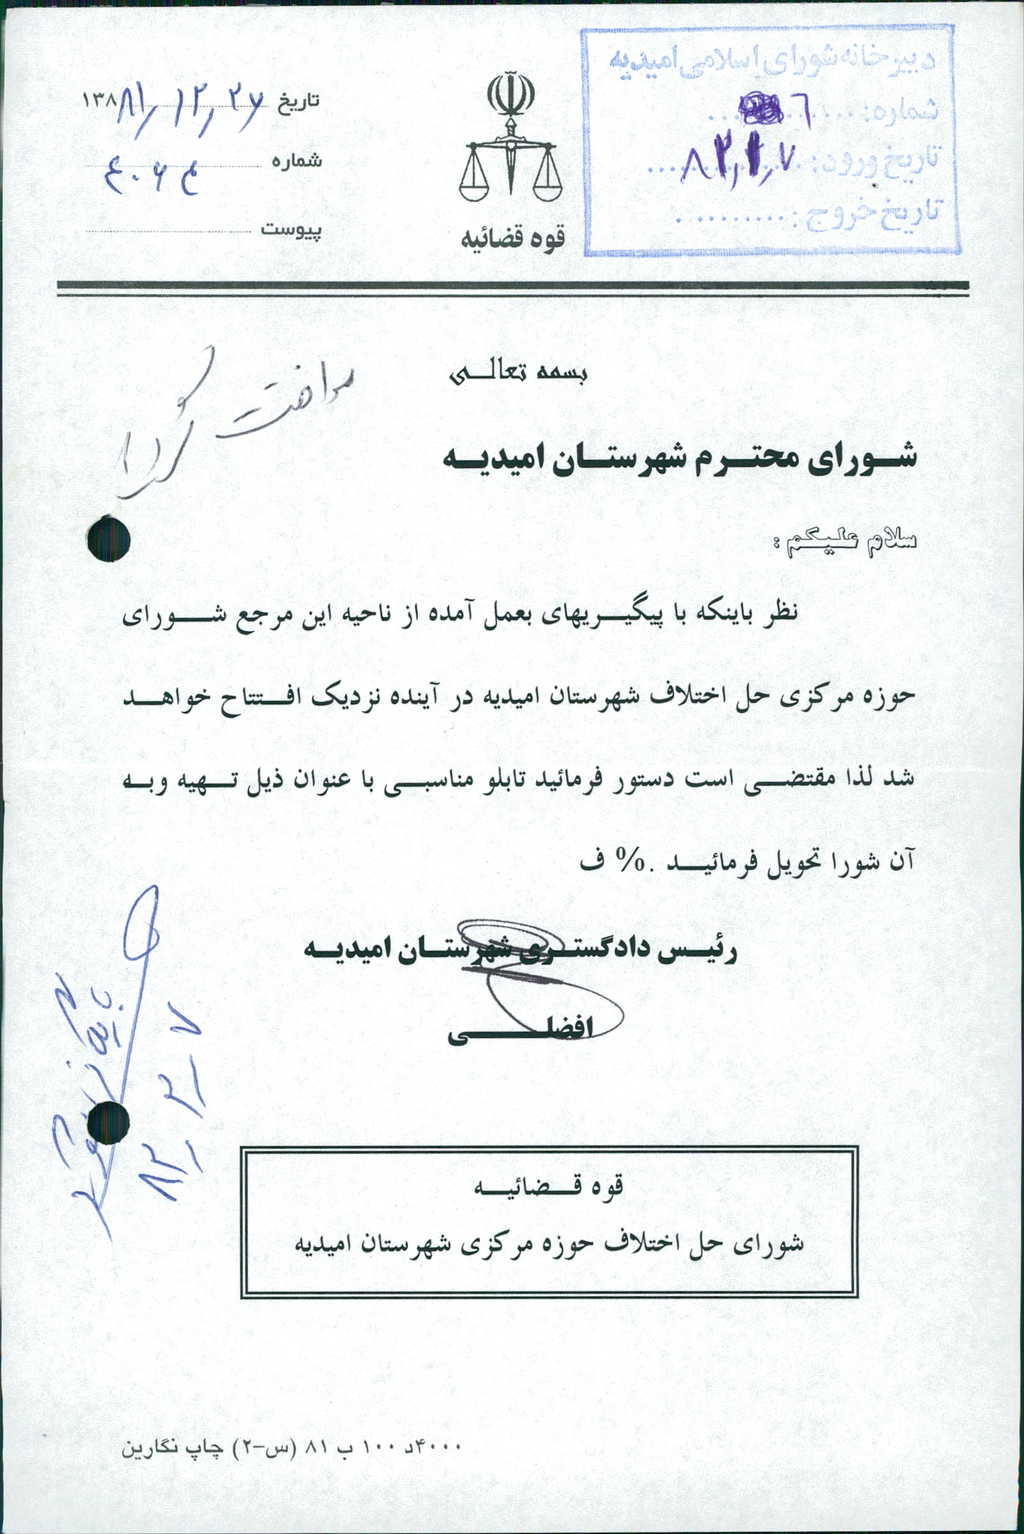 دبیرخانه شورای اسلامی امیدیه
شماره: ۶
تاریخ ورود: ۸۲,۲,۷
تاریخ خروج:
قوه قضائیه
تاریخ ۱۳۸۱,۱۲,۲۶
شماره ۴۰۶۴
پیوست
بسمه تعالی
شورای محترم شهرستان امیدیه
سلام علیکم :
نظر باینکه با پیگیریهای بعمل آمده از ناحیه این مرجع شورای
حوزه مرکزی حل اختلاف شهرستان امیدیه در آینده نزدیک افتتاح خواهد
شد لذا مقتضی است دستور فرمائید تابلو مناسبی با عنوان ذیل تهیه وبه
آن شورا تحویل فرمائید .% ف
رئیس دادگستری شهرستان امیدیه
افضلی
بایگانی
قوه قضائیه
شورای حل اختلاف حوزه مرکزی شهرستان امیدیه
۴۰۰۰د ۱۰۰ ب ۸۱ (س-۲) چاپ نگارین